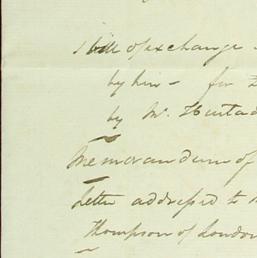 1 bill of exchange
by him - for
by Mr. Hurtad
Memorandum of
Letter addressed to
Thompson of London